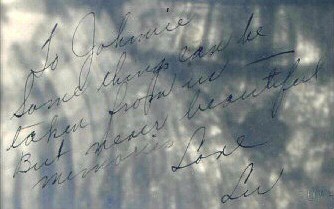 To Johnnie
Some things can be
taken from us —
But never beautiful
memories
Love
Lu